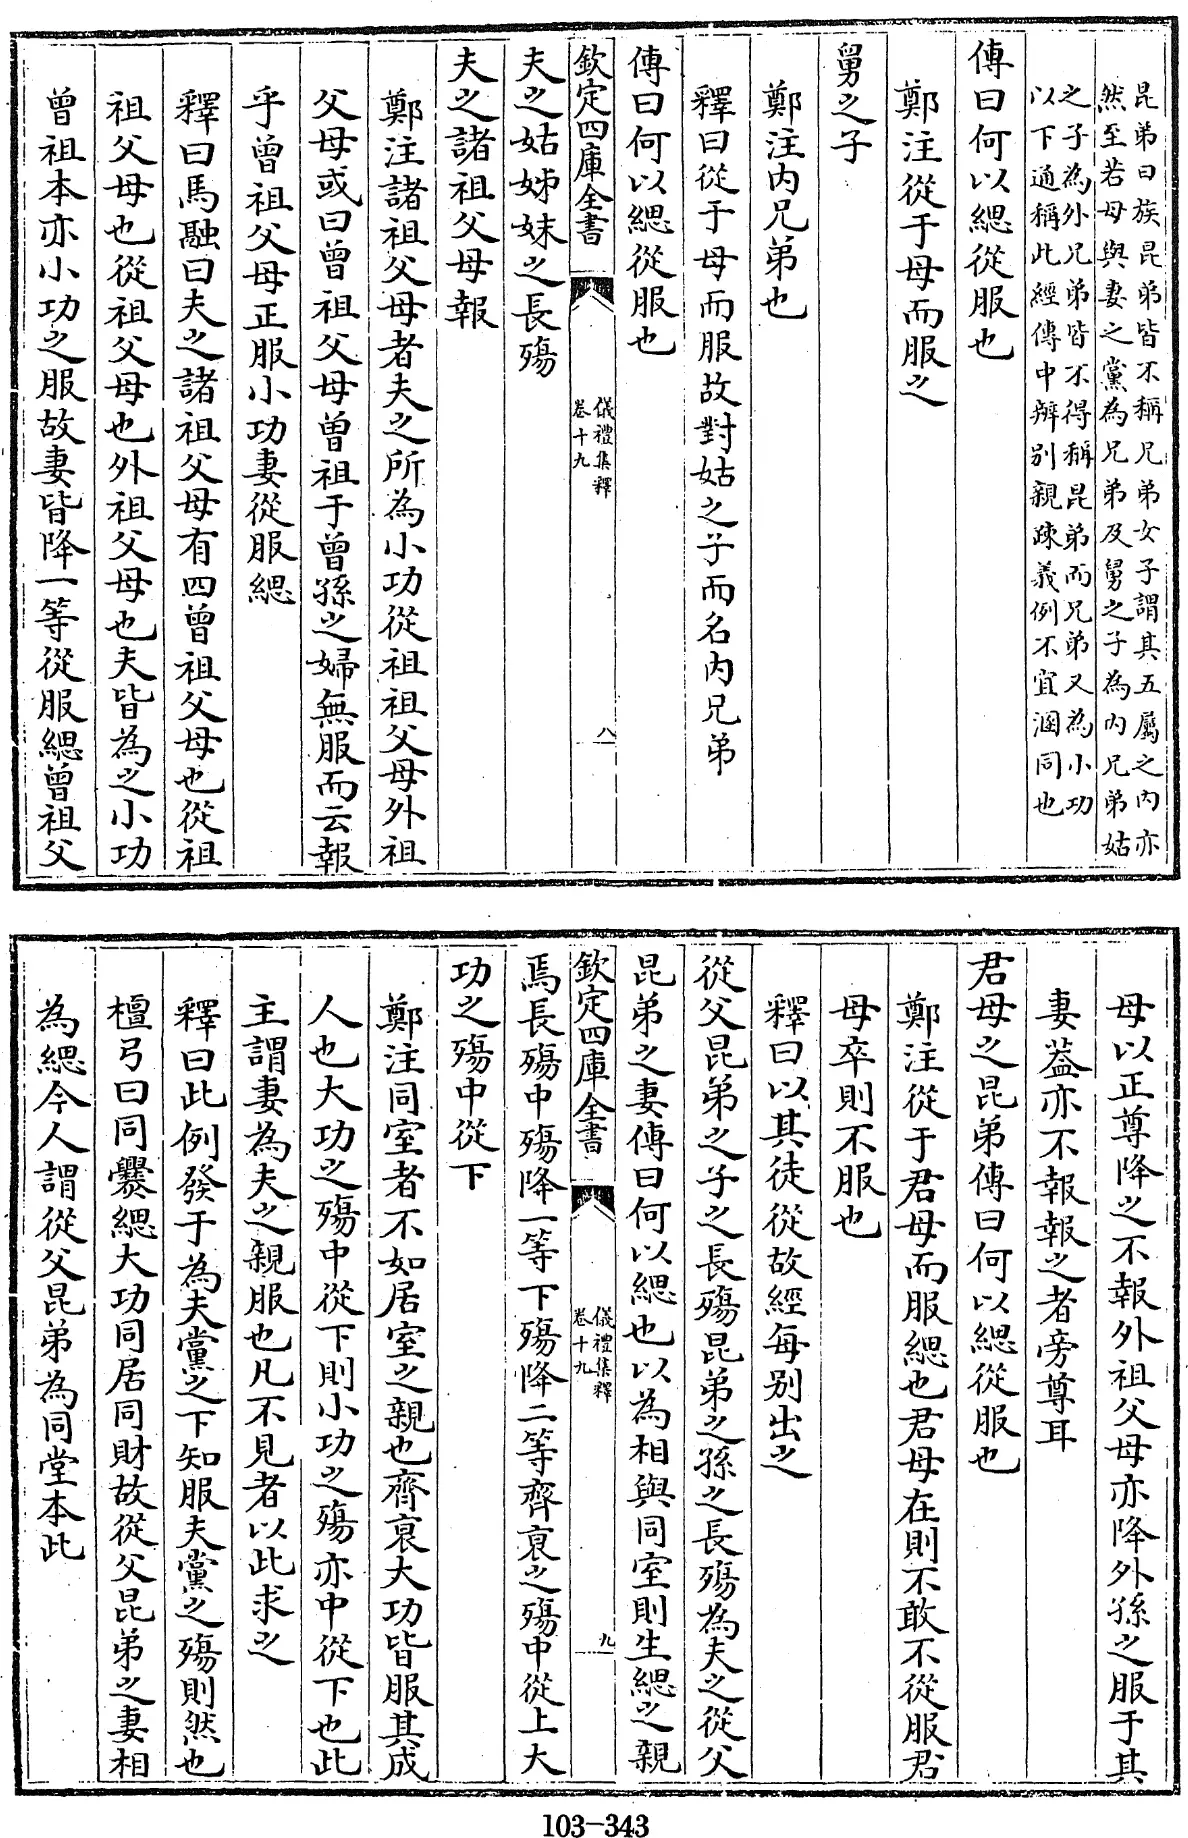 昆弟曰族昆弟皆不稱兄弟女子謂其五屬之内亦
然至若母與妻之黨為兄弟及舅之子為内兄弟姑
之子為外兄弟皆不得稱昆弟而兄弟又為小功
以下通稱此經傳中辨别親疎義例不宜溷同也
傳曰何以緦從服也
鄭注從于母而服之
舅之子
鄭注内兄弟也
釋曰從于母而服故對姑之子而名内兄弟
傳曰何以緦從服也
欽定四庫全書
儀禮集釋
卷十九
八
夫之姑姊妹之長殤
夫之諸祖父母報
鄭注諸祖父母者夫之所為小功從祖祖父母外祖
父母或曰曾祖父母曾祖于曾孫之婦無服而云報
乎曾祖父母正服小功妻從服緦
釋曰馬融曰夫之諸祖父母有四曾祖父母也從祖
祖父母也從祖父母也外祖父母也夫皆為之小功
曾祖本亦小功之服故妻皆降一等從服緦曾祖父
母以正尊降之不報外祖父母亦降外孫之服于其
妻葢亦不報報之者旁尊耳
君母之昆弟傳曰何以緦從服也
鄭注從于君母而服緦也君母在則不敢不從服君
母卒則不服也
釋曰以其徒從故經每别出之
從父昆弟之子之長殤昆弟之孫之長殤為夫之從父
昆弟之妻傳曰何以緦也以為相與同室則生緦之親
欽定四庫全書
儀禮集釋
卷十九
九
焉長殤中殤降一等下殤降二等齊衰之殤中從上大
功之殤中從下
鄭注同室者不如居室之親也齊衰大功皆服其成
人也大功之殤中從下則小功之殤亦中從下也此
主謂妻為夫之親服也凡不見者以此求之
釋曰此例發于為夫黨之下知服夫黨之殤則然也
檀弓曰同爨緦大功同居同財故從父昆弟之妻相
為緦今人謂從父昆弟為同堂本此
103-343